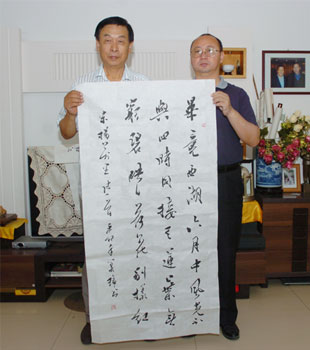 畢竟西湖六月中風光不
與四時同接天蓮葉無
窮碧映日荷花別樣紅
宋楊萬里詩